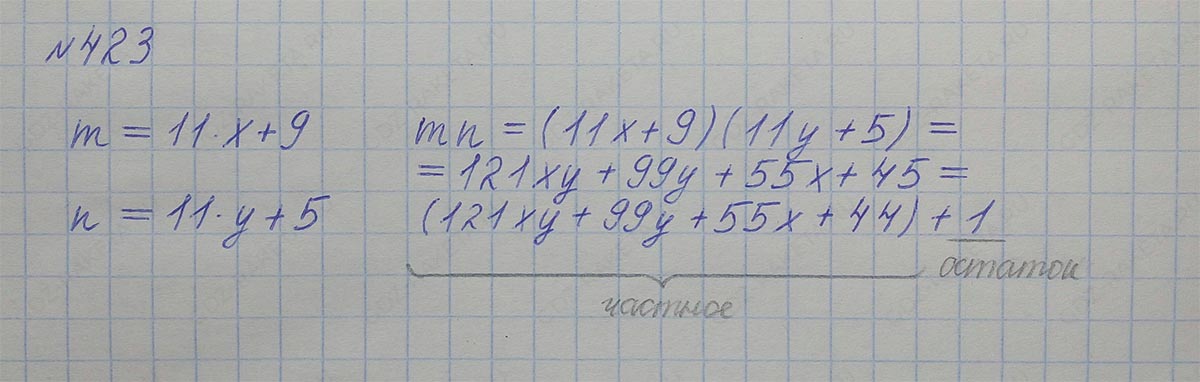 №423
m = 11·x+9
n = 11·y+5
mn = (11x+9)(11y+5) =
= 121xy + 99y + 55x + 45 =
(121xy + 99y + 55x + 44) + 1
остаток
частное